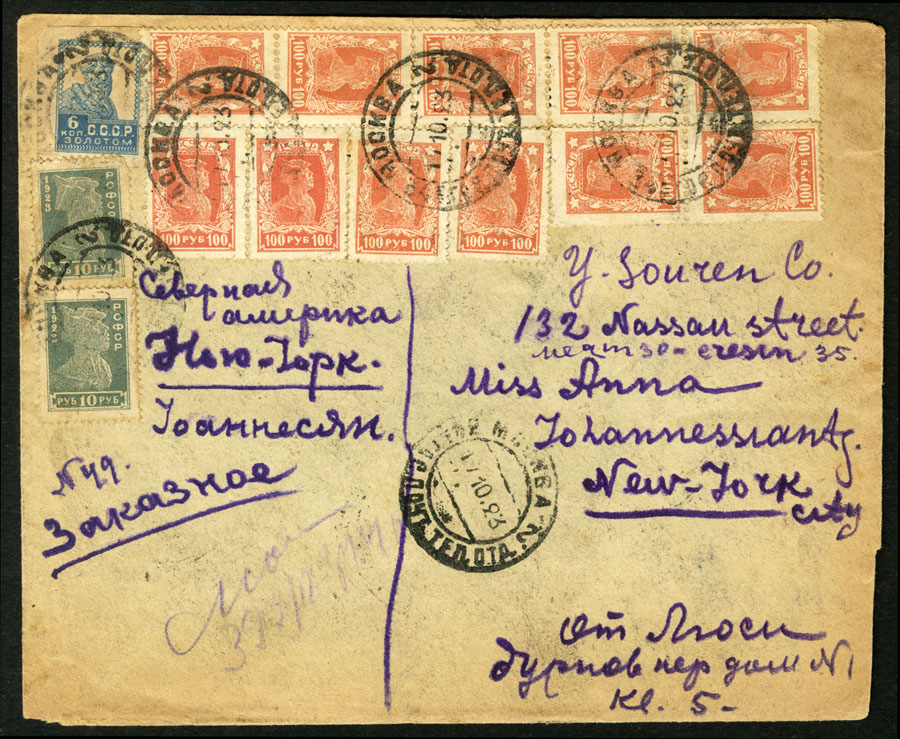 6
КОП. С.С.С.Р.
ЗОЛОТОМ
1923
РСФСР
РУБ 10 РУБ
192
РСФСР
РУБ 10 РУБ
100 РУБ 100
100 РУБ 100
100 РУБ 100
100 РУБ 100
100 РУБ 100
100 РУБ 100
100 РУБ 100
100 РУБ 100
100 РУБ 100
100 РУБ 100
100 РУБ 100
МОСКВА 2
МОСКВА 2
МОСКВА 2
Северная
америка
Нью-Iорк.
Iоаннесян.
N 49.
Заказное
Y. Souren Co.
132 Nassau street.
35.
Miss Anna
Johannessiantz.
New-Jork
city
МОСКВА 2
17.10.23
ТЕЛ.ОТД.
От Люси
дурнов пер дом N1
Кв. 5-